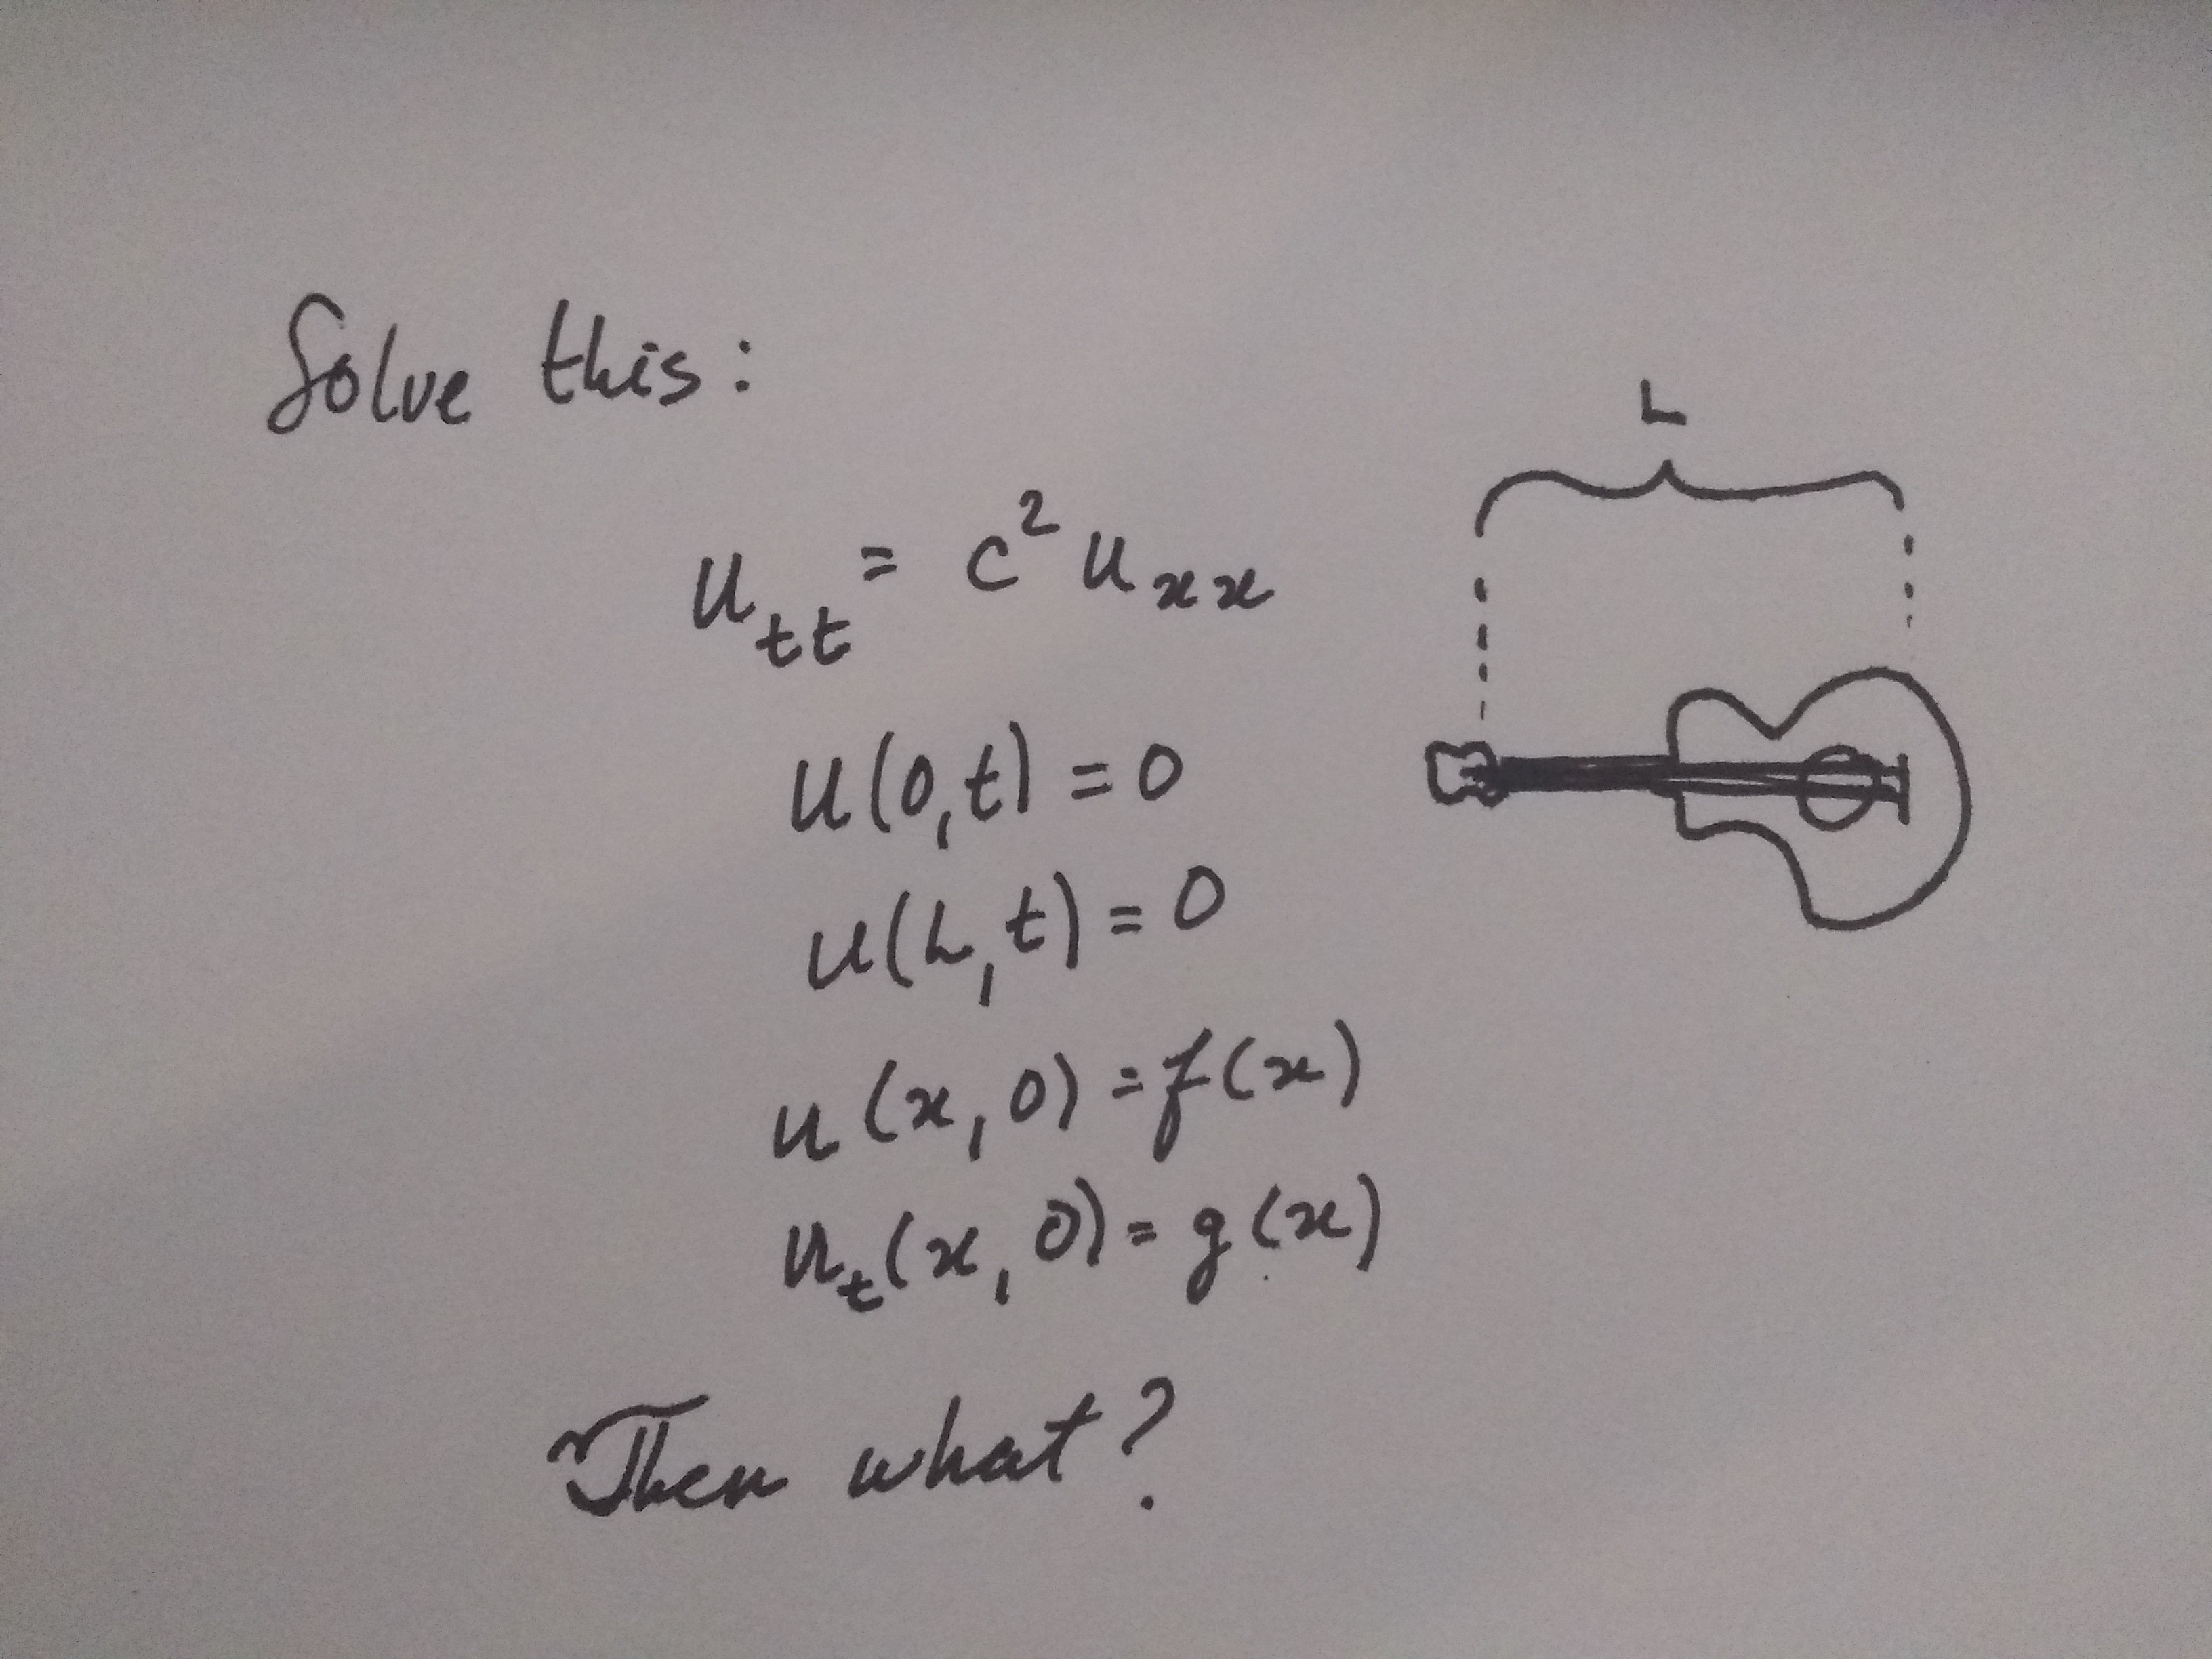 Solve this:
L
u_tt = c² u_xx
u(0,t) = 0
u(L,t) = 0
u(x,0) = f(x)
u_t(x,0) = g(x)
Then what?